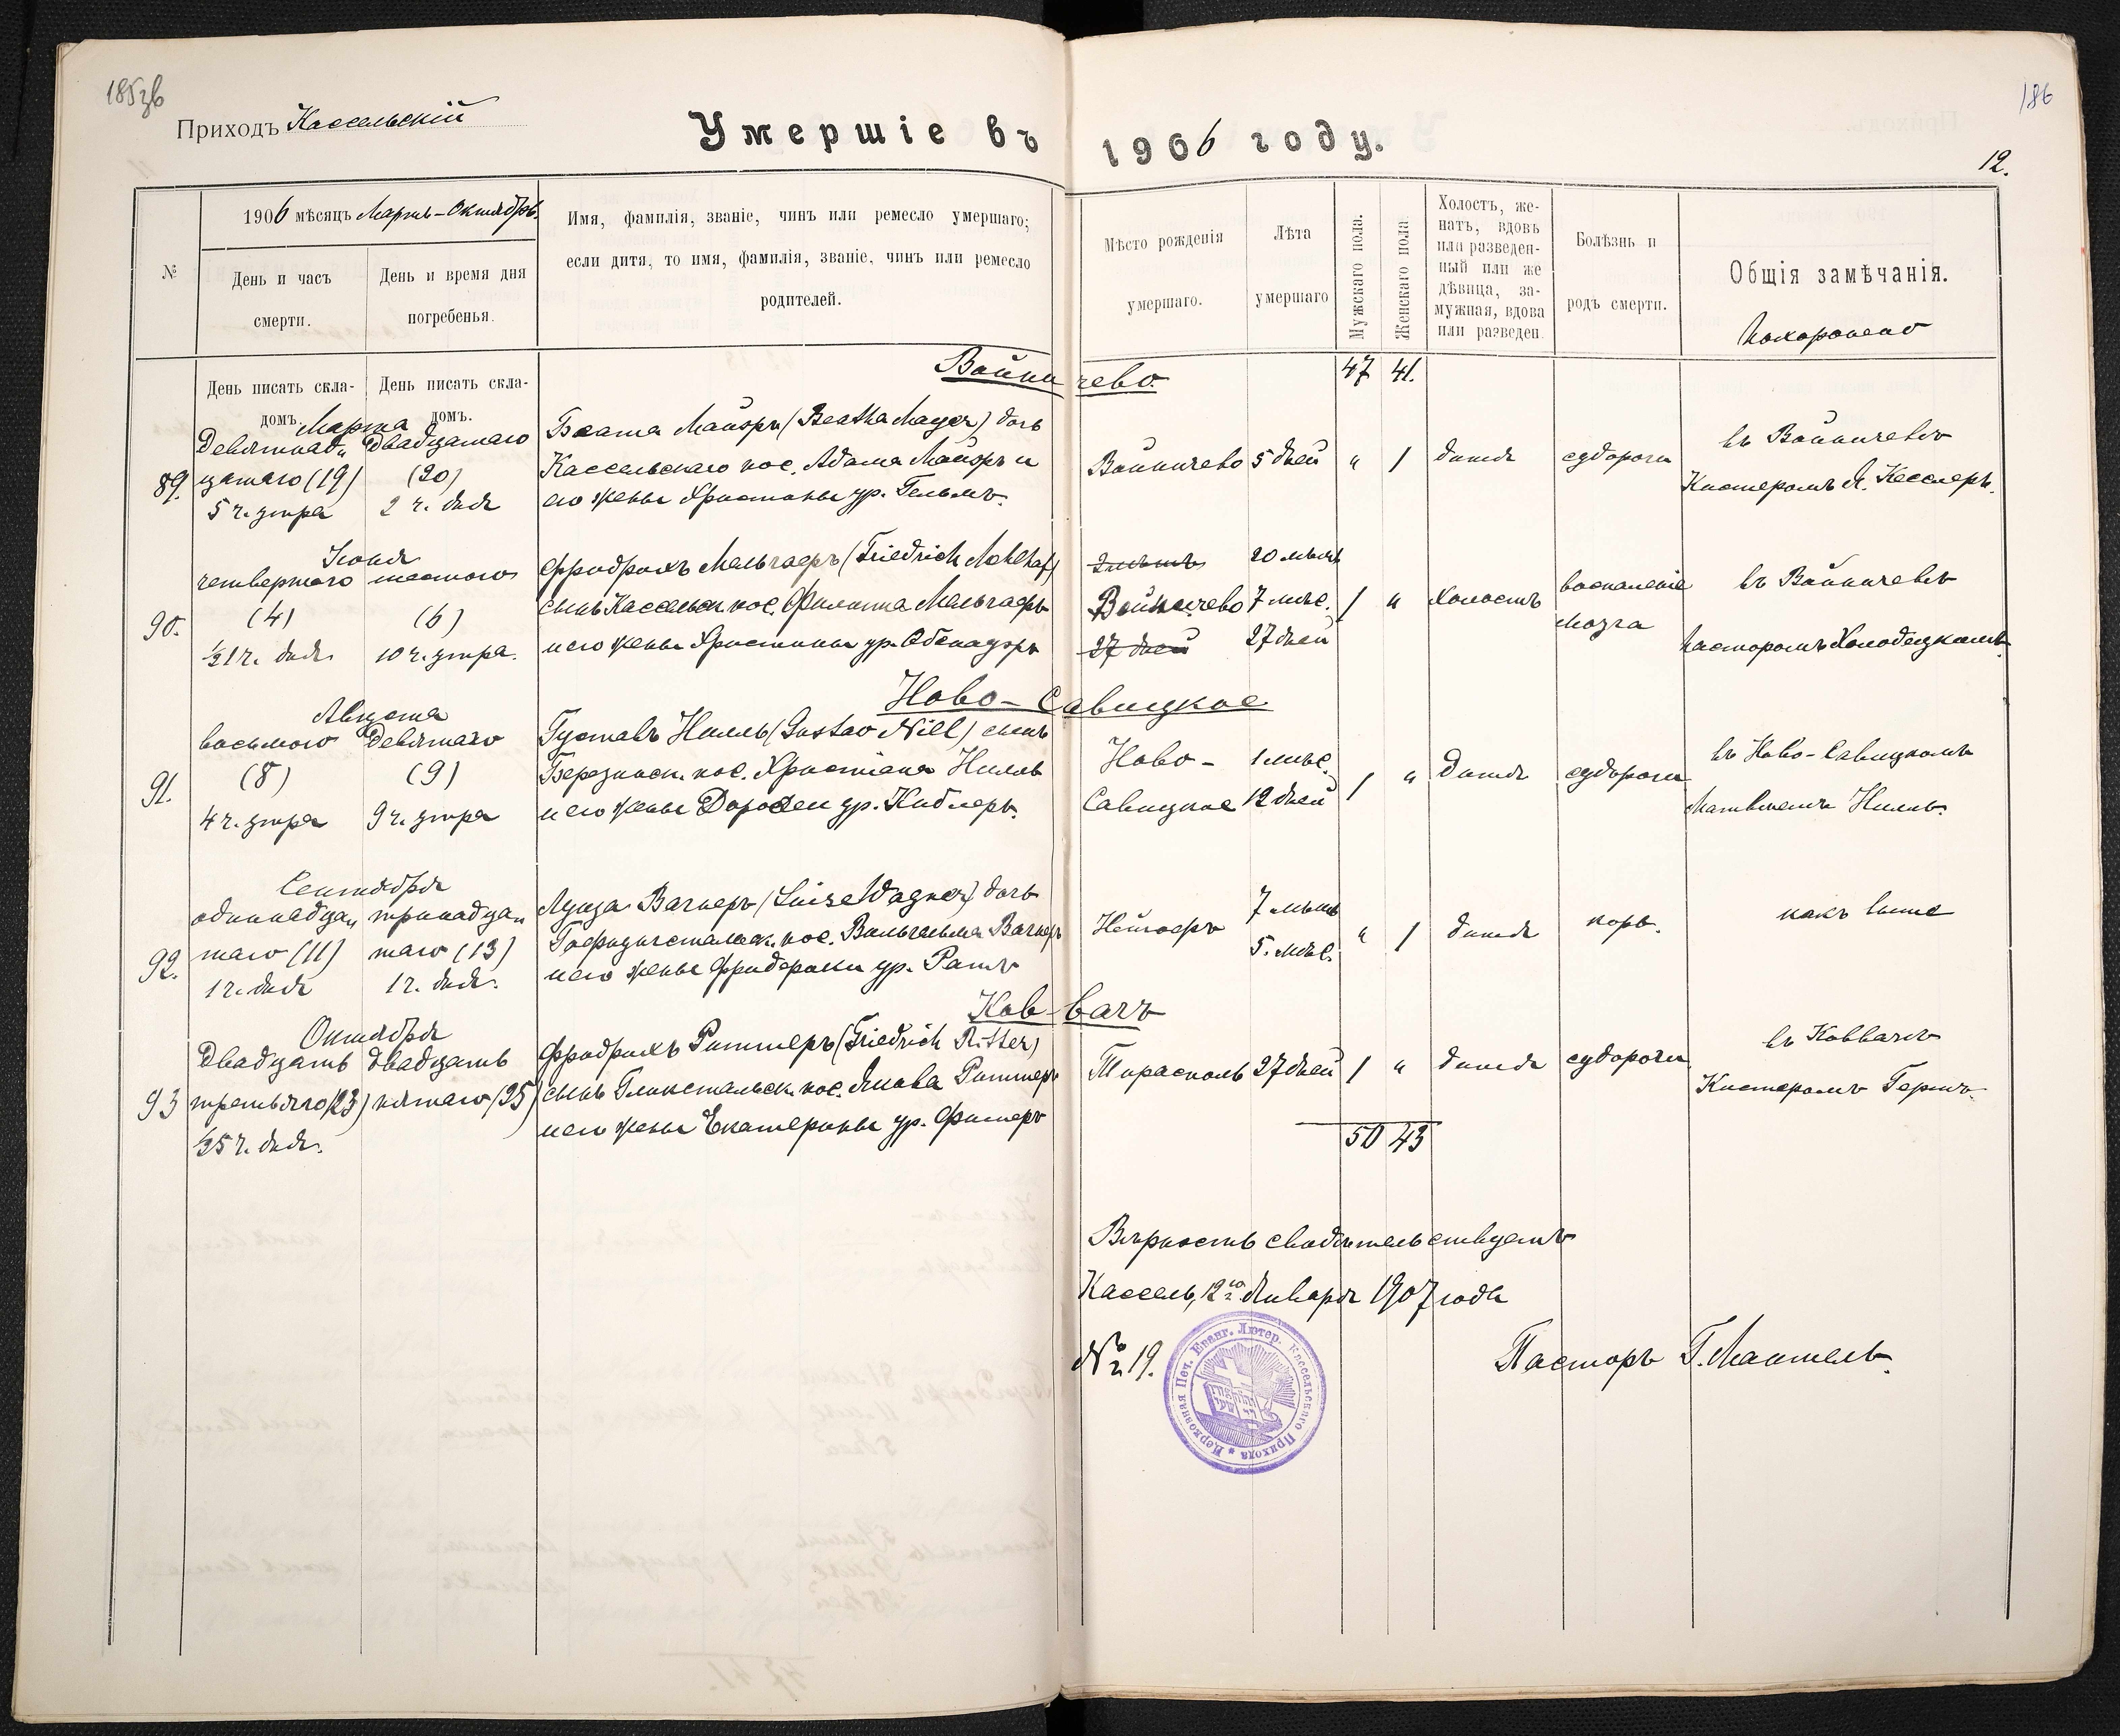 185 зв
186
Приходъ Кассельскій
Умершіе въ 1906 году.
12.
№
1906 мѣсяцъ Мартъ-Октябрь.
День и часъ смерти.
День и время дня погребенья.
Имя, фамилія, званіе, чинъ или ремесло умершаго;
если дитя, то имя, фамилія, званіе, чинъ или ремесло
родителей.
Мѣсто рожденія
умершаго.
Лѣта
умершаго
Мужскаго пола.
Женскаго пола
Холостъ, же-
натъ, вдовъ
или разведен-
ный или же
дѣвица, за-
мужная, вдова
или разведен.
Болѣзнь и
родъ смерти.
Общія замѣчанія.
Похоронено
День писать скла-
домъ.
День писать скла-
домъ.
Войничево.
47 41.
89.
Марта
Девятнад„
цатаго (19)
5 ч. утра
Двадцатаго
(20)
2 ч. дня
Беата Майеръ (Beatha Mayer) дочь
Кассельскаго пос. Адама Майеръ и
его жены Христины ур. Гельмъ.
Войничево 5 дней „ 1 дитя судороги
въ Войничевѣ
Кистеромъ Я. Кесслеръ.
90.
Іюня
четвертаго
(4)
½1 ч. дня.
шестого
(6)
10 ч. утра.
Фридрихъ Мельгафъ (Friedrich Mehlhaf)
сынъ Кассельск. пос. Филиппа Мельгафъ
и его жены Христины ур. Обенауеръ
Войничево
27 дней
20 лѣтъ
7 мѣс.
27 дней
1 „ холостъ
воспаленіе
мозга
въ Войничевѣ
пасторомъ Холодецкимъ.
Ново-Савицкое
91.
Августа
восьмого
(8)
4 ч. утра
Девятаго
(9)
9 ч. утра
Густавъ Нилль (Gustav Nill) сынъ
Березинск. пос. Христіана Нилль
и его жены Доротеи ур. Киблеръ.
Ново-
Савицкое
1 мѣс.
12 дней
1 „ дитя судороги
въ Ново-Савицкомъ
Матвѣемъ Нилль.
92.
Сентября
одиннадца„
таго (11)
1 ч. дня
тринадца„
таго (13)
1 ч. дня.
Луиза Вагнеръ (Luise Wagner) дочь
пос. Вильгельма Вагнеръ
и его жены Фридерики ур. Ратъ
7 лѣтъ
5. мѣс.
„ 1 дитя корь.
какъ выше
Ков-вачъ
93
Октября
Двадцать
третьяго (23)
½5 ч. дня.
двадцать
пятаго (25)
Фридрихъ Риттеръ (Friedrich Ritter)
сынъ Глюкстальск. пос. Якова Риттеръ
и его жены Екатерины ур. Фитеръ
Тирасполь 27 дней 1 „ дитя судороги
въ Коввачѣ
Кистеромъ
50 43
Вѣрность свидѣтельствуетъ
Кассель, 12го Января 1907 года
№ 19.
Пасторъ Г. Мантель.
Церковная Печ. Еванг. Лютер. Кассельскаго Прихода